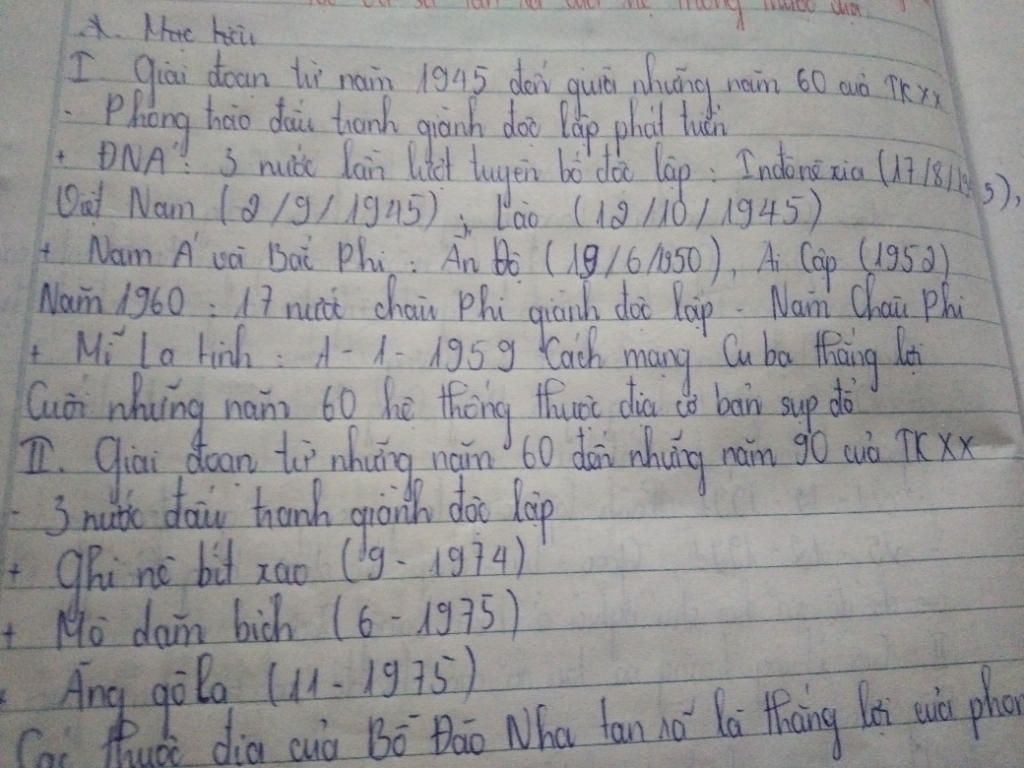 hệ thống thuộc địa
* Mục tiêu
I Giai đoạn từ năm 1945 đến giữa những năm 60 của TK XX
- Phong trào đấu tranh giành độc lập phát triển
+ ĐNA : 3 nước lần lượt tuyên bố độc lập : Inđônêxia (17/8/1945),
Việt Nam (2/9/1945) ; Lào (12/10/1945)
+ Nam Á và Bắc Phi : Ấn Độ (19/6/1950), Ai Cập (1952)
Năm 1960 : 17 nước châu Phi giành độc lập - Năm Châu Phi
+ Mĩ La tinh : 1-1-1959 Cách mạng Cu ba thắng lợi
Cuối những năm 60 hệ thống thuộc địa cơ bản sụp đổ
II. Giai đoạn từ những năm 60 đến những năm 90 của TK XX
- 3 nước đấu tranh giành độc lập
+ Ghi nê bít xao (9-1974)
+ Mô dăm bích (6-1975)
+ Ăng gô la (11-1975)
Các thuộc địa của Bồ Đào Nha tan rã là thắng lợi của